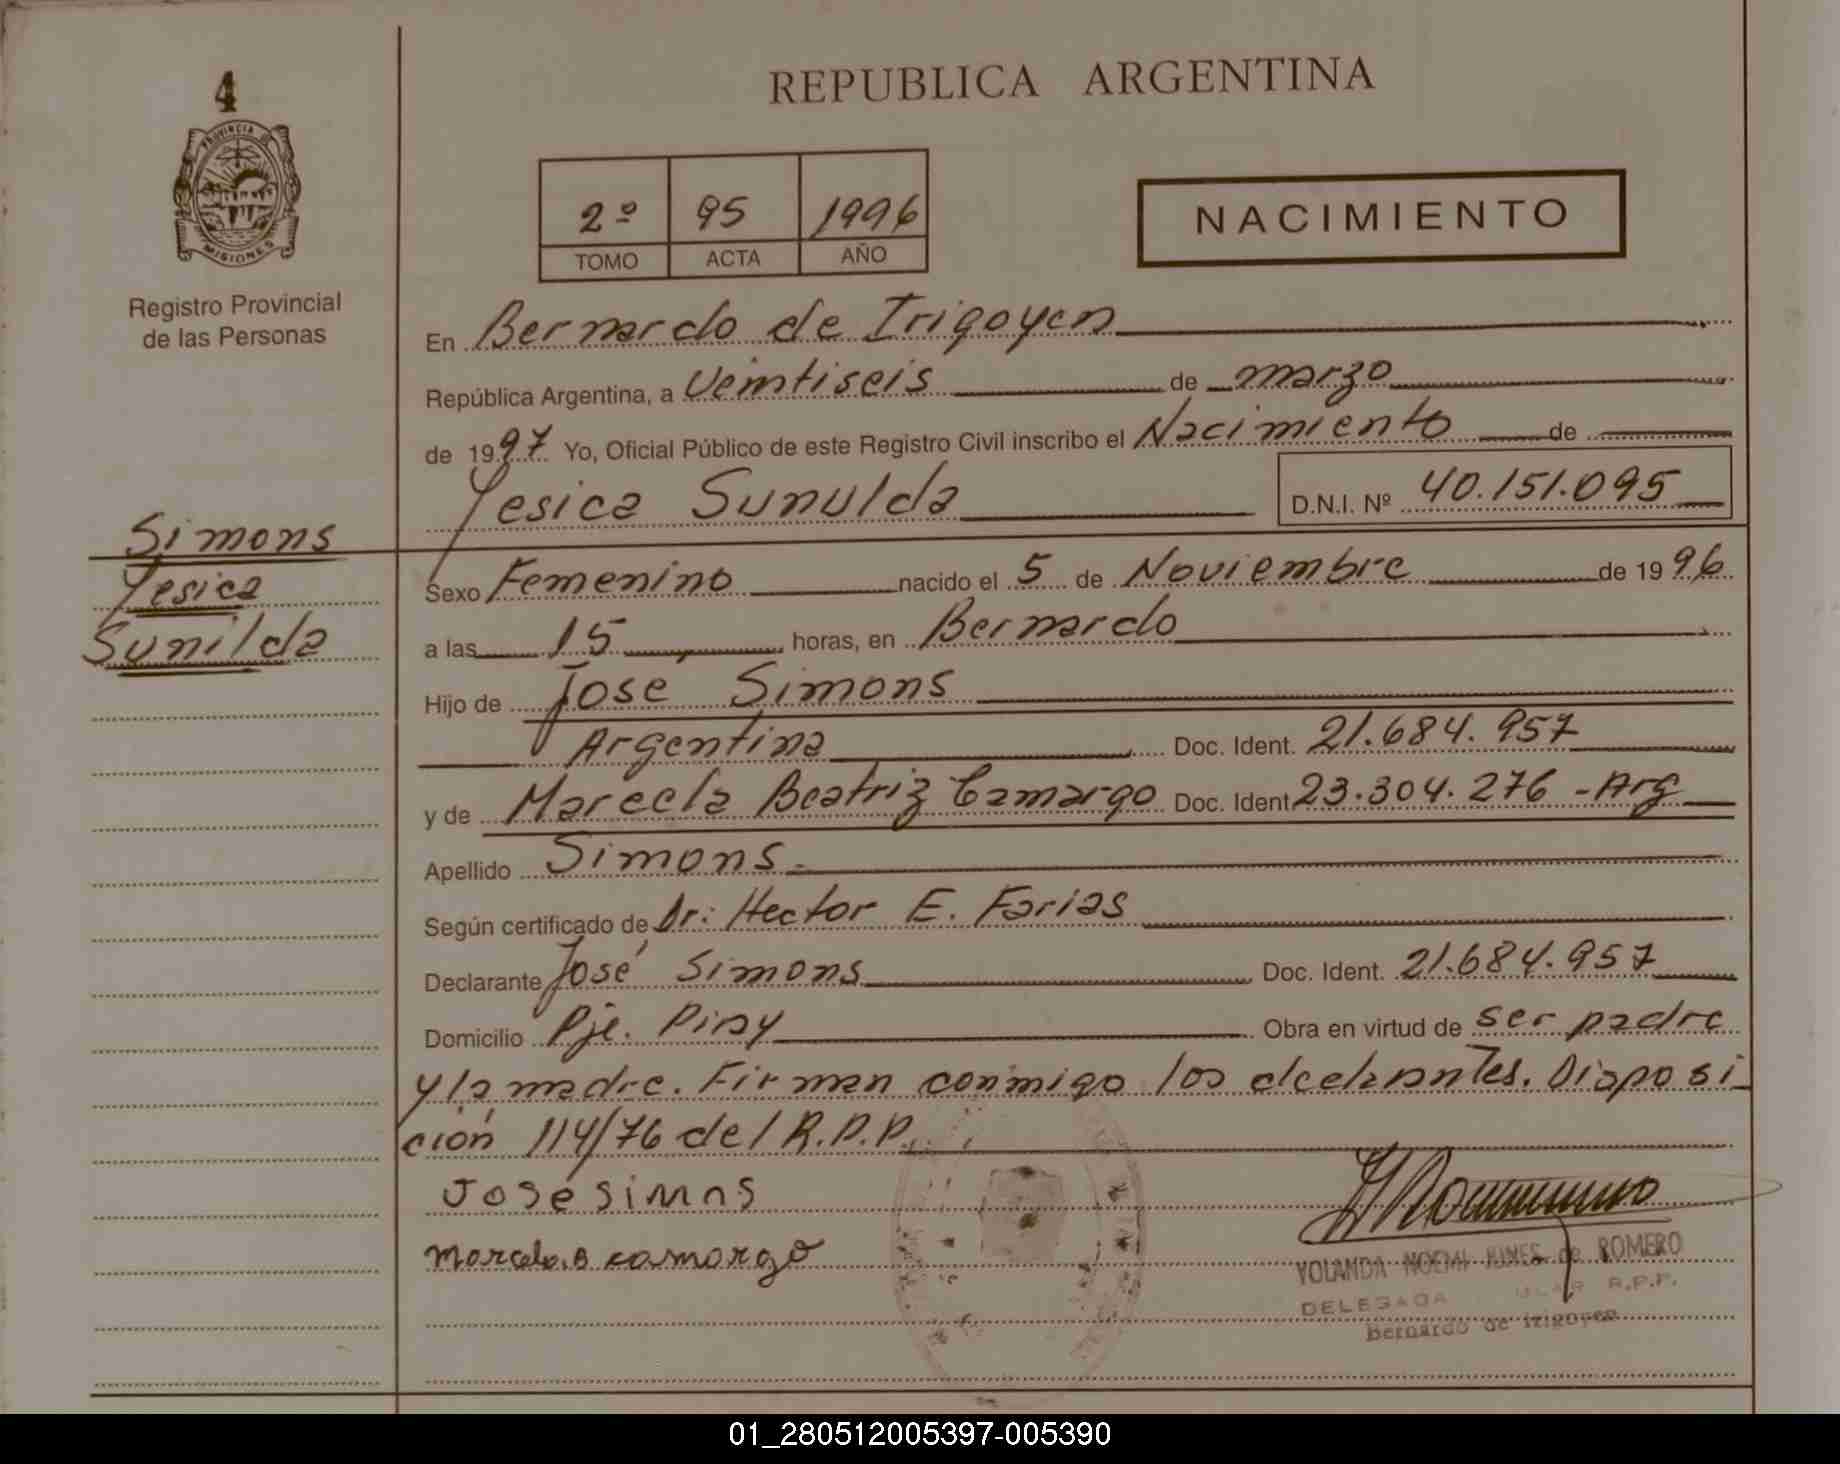 4
PROVINCIA DE
MISIONES
Registro Provincial
de las Personas
REPUBLICA ARGENTINA
2º 95 1996
TOMO ACTA AÑO
NACIMIENTO
En Bernardo de Irigoyen
República Argentina, a Veintiseis de marzo
de 1997 Yo, Oficial Público de este Registro Civil inscribo el Nacimiento de
Yesica Sunulda D.N.I. Nº 40.151.095
Simons
Yesica
Sunilda
Sexo Femenino nacido el 5 de Noviembre de 1996
a las 15 horas, en Bernardo
Hijo de Jose Simons
Argentina Doc. Ident. 21.684.957
y de Marcela Beatriz Camargo Doc. Ident 23.304.276 - Arg
Apellido Simons
Según certificado de Dr: Hector E. Farias
Declarante José Simons Doc. Ident. 21.684.957
Domicilio Pje. Piray Obra en virtud de ser padre
y la madre. Firman conmigo los declarantes. Disposi
ción 114/76 del R.P.P.
José Simns
Marcela.B camargo
YOLANDA NOEMI de ROMERO
DELEGADA R.P.P.
Bernardo de Irigoyen
01_280512005397-005390